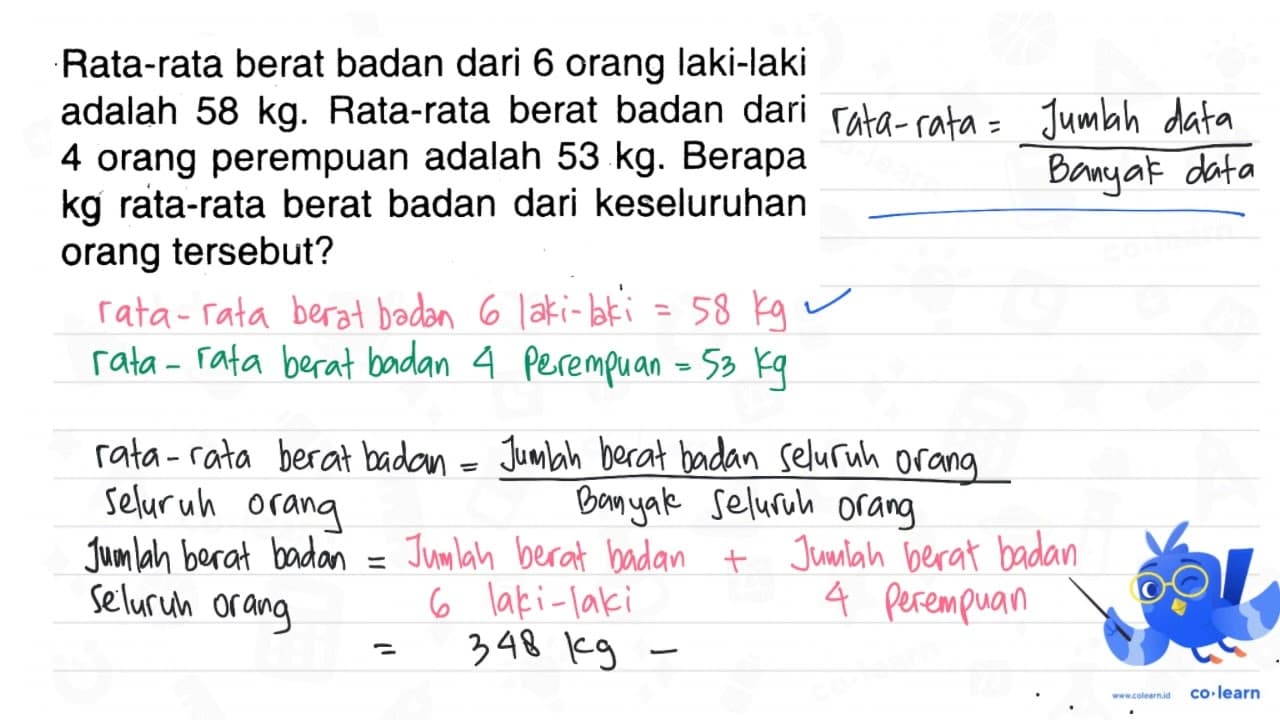 Rata-rata berat badan dari 6 orang laki-laki
adalah 58 kg. Rata-rata berat badan dari
4 orang perempuan adalah 53 kg. Berapa
kg rata-rata berat badan dari keseluruhan
orang tersebut?
rata-rata = Jumlah data
Banyak data
rata-rata berat badan 6 laki-laki = 58 kg ✓
rata-rata berat badan 4 Perempuan = 53 kg
rata-rata berat badan = Jumlah berat badan seluruh orang
seluruh orang Banyak seluruh orang
Jumlah berat badan = Jumlah berat badan + Jumlah berat badan
seluruh orang 6 laki-laki 4 Perempuan
= 348 kg –
www.colearn.id co·learn